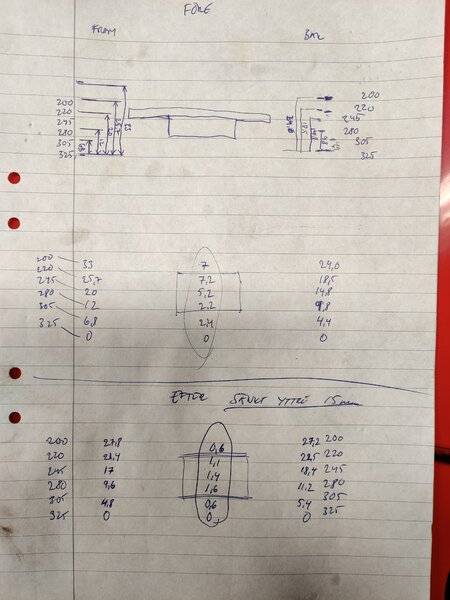 FÖRE
FRAM BAK
200 200
220 220
245 245
280 280
305 305
325 325
33
200 33 7 24,0
220 25,7 7,2 18,5
245 20 5,2 14,8
280 12 2,2 9,8
305 6,8 2,4 4,4
325 0 0 0
EFTER SÄNKT YTTRE 15mm
200 27,8 0,6 27,2 200
220 1,1 220
245 17 1,4 18,4 245
280 9,6 1,6 11,2 280
305 4,8 0,6 5,4 305
325 0 0 0 325